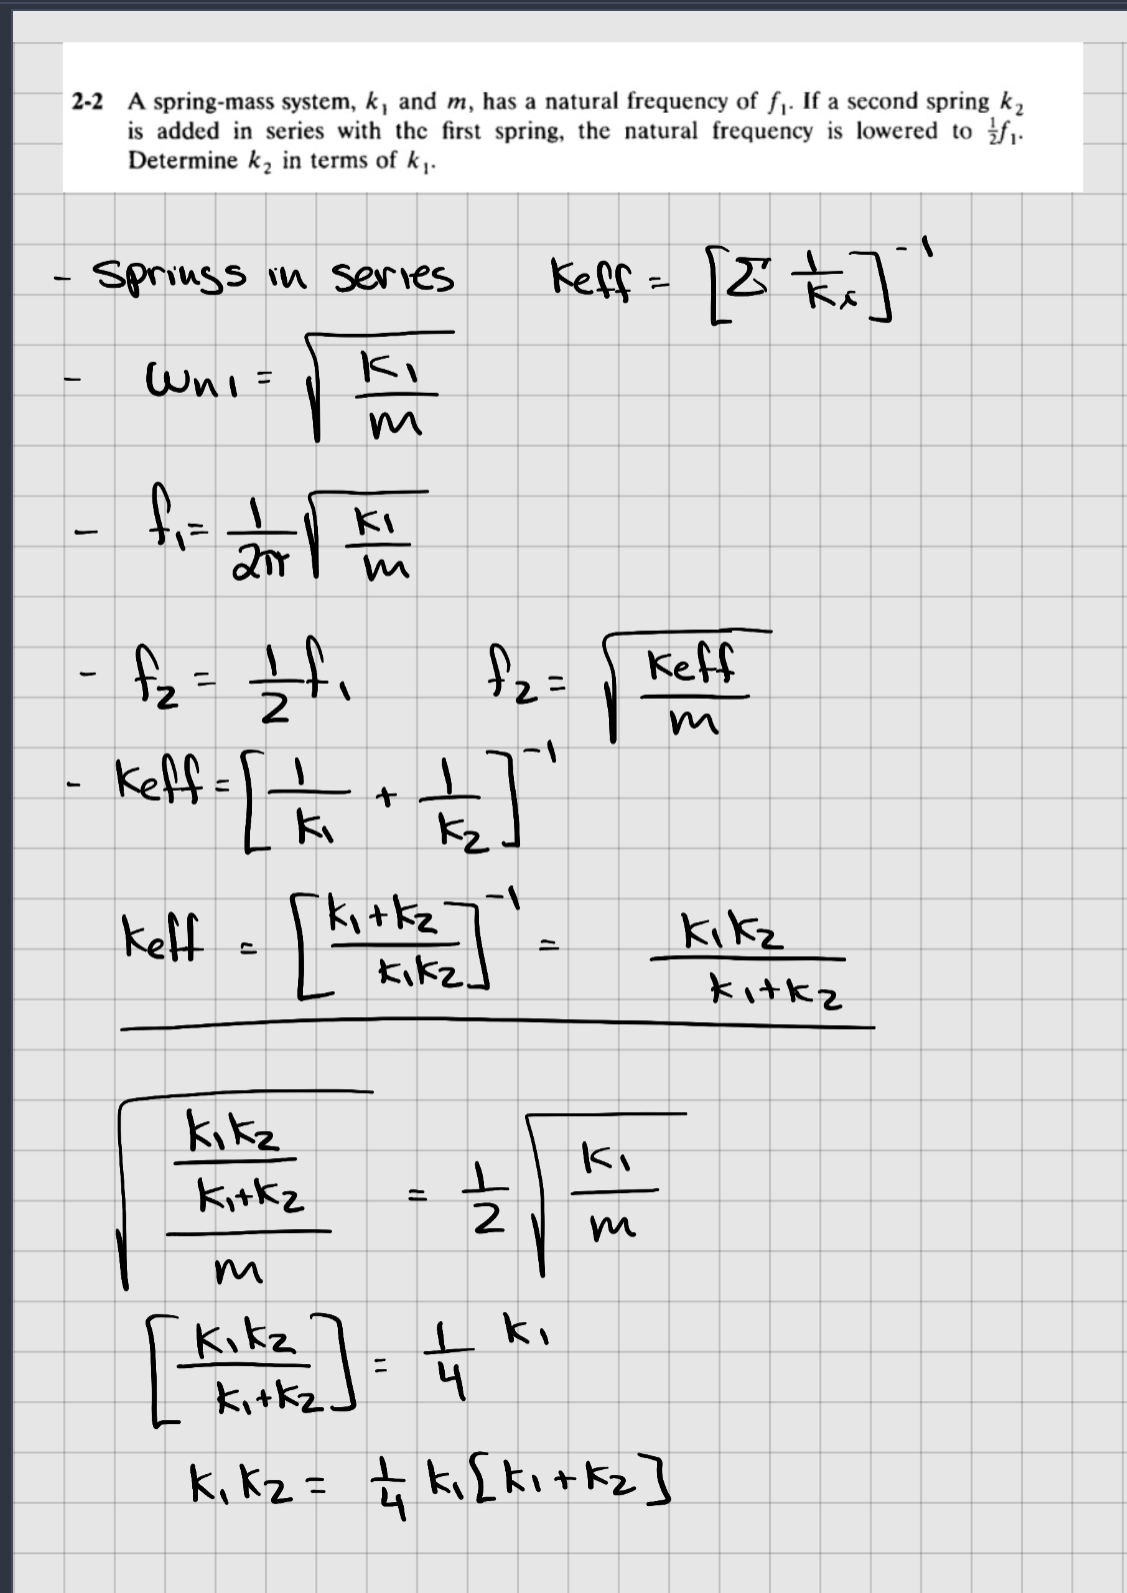 2-2 A spring-mass system, k₁ and m, has a natural frequency of f₁. If a second spring k₂
is added in series with the first spring, the natural frequency is lowered to ½f₁.
Determine k₂ in terms of k₁.
- Springs in series Keff = [Σ 1/Kx]⁻¹
- ωn1 = √(K1/m)
- f₁ = 1/2π √(K1/m)
- f₂ = 1/2 f₁ f₂ = √(Keff/m)
- Keff = [1/K₁ + 1/K₂]⁻¹
Keff = [(K₁+K₂)/(K₁K₂)]⁻¹ = K₁K₂/(K₁+K₂)
√((K₁K₂/(K₁+K₂))/m) = 1/2 √(K₁/m)
[K₁K₂/(K₁+K₂)] = 1/4 K₁
K₁K₂ = 1/4 K₁[K₁+K₂]